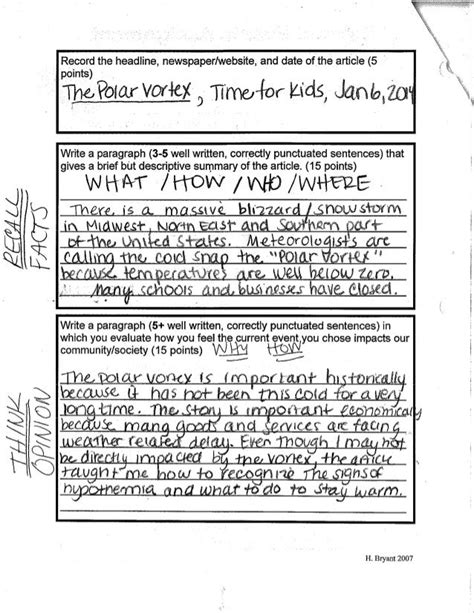 Record the headline, newspaper/website, and date of the article (5
points)
The Polar Vortex, Time for Kids, Jan 6, 2014
Write a paragraph (3-5 well written, correctly punctuated sentences) that
gives a brief but descriptive summary of the article. (15 points)
WHAT / HOW / WHO / WHERE
RECALL
FACTS
There is a massive blizzard/snowstorm
in Midwest, North East and Southern part
of the United States. Meteorologist's are
calling the cold snap the "Polar Vortex"
because temperatures are well below zero.
Many schools and businesses have closed.
Write a paragraph (5+ well written, correctly punctuated sentences) in
which you evaluate how you feel the current event you chose impacts our
community/society (15 points) WHY HOW
THINK
OPINION
The polar vortex is important historically
because it has not been this cold for a very
long time. The story is important economically
because many goods and services are facing
weather related delay. Even though I may not
be directly impacted by the vortex, the article
taught me how to recognize the signs of
hypothemia and what to do to stay warm.
H. Bryant 2007